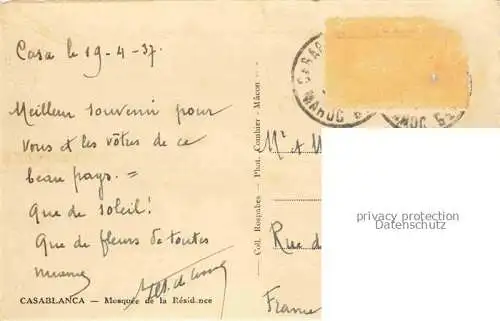 Casa le 19-4-37.
Meilleur souvenir pour
vous et les vôtres de ce
beau pays. =
Que de soleil!
Que de fleurs de toutes
CASABLANCA — Mosquée de la Résidence
Coll. Rospabes - Phot. Combier - Mâcon
MAROC
Mr et
Rue
France
privacy protection
Datenschutz